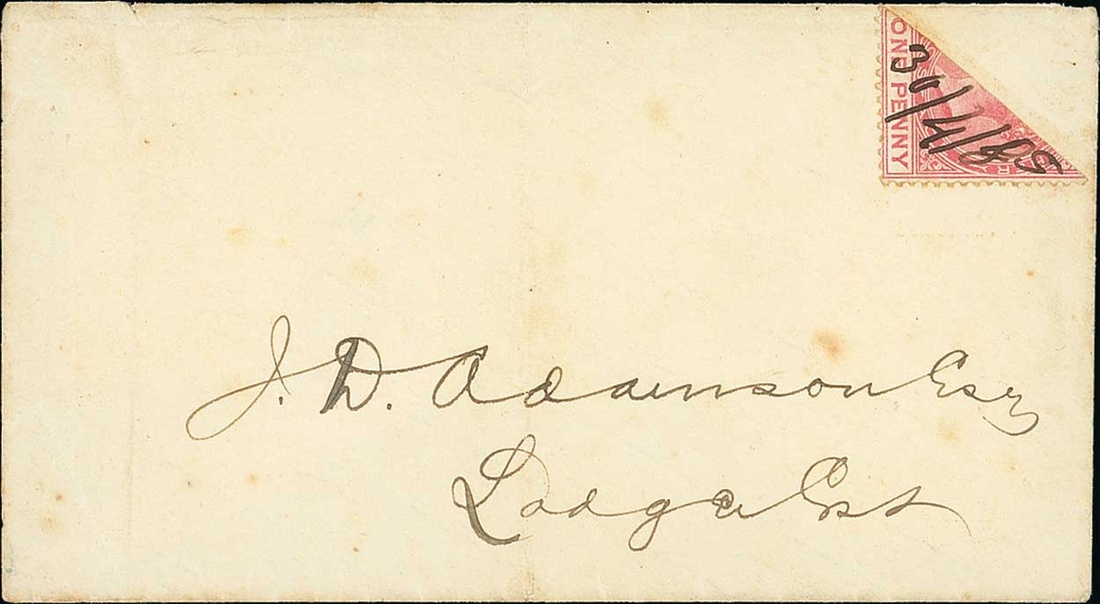 ONE PENNY
30/4/85
R
J. D. Adamson Esq
Lodge Est